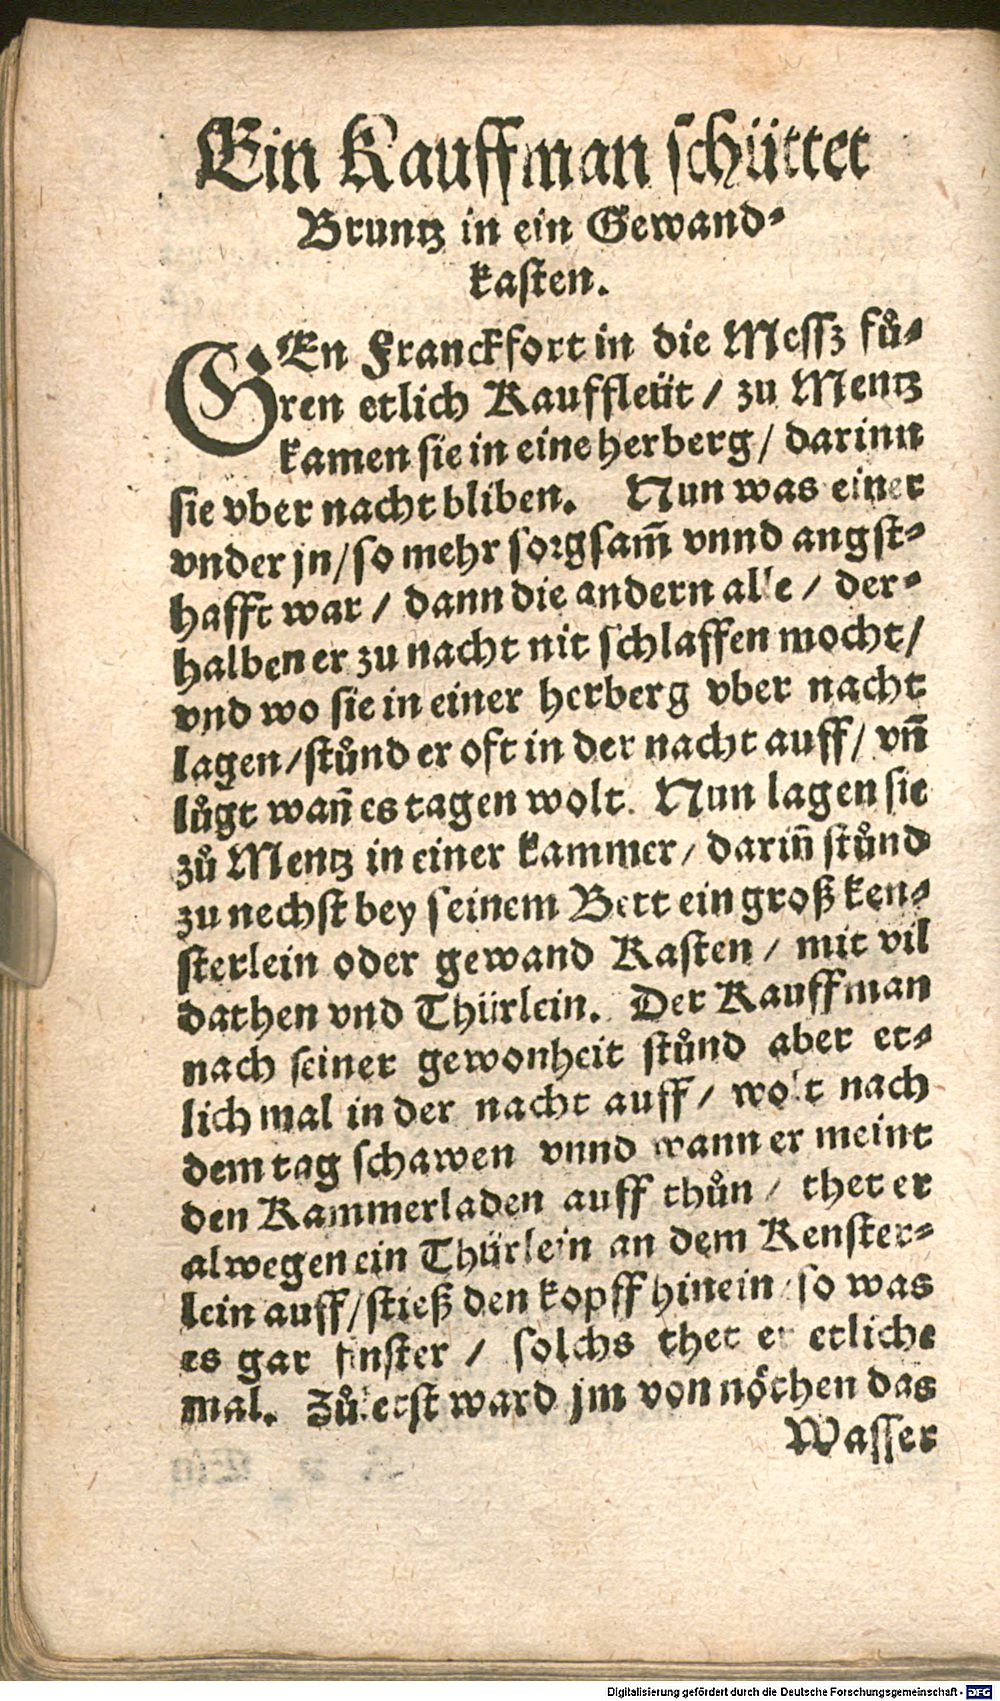 Ein Kauffman schüttet
Bruntz in ein Gewand⸗
kasten.
GEn Franckfort in die Messz fuͤ⸗
ren etlich Kauffleüt / zu Mentz
kamen sie in eine herberg / darinn
sie vber nacht bliben. Nun was einer
vnder jn / so mehr sorgsam̄ vnnd angst⸗
hafft war / dann die andern alle / der⸗
halben er zu nacht nit schlaffen mocht /
vnd wo sie in einer herberg vber nacht
lagen / stůnd er oft in der nacht auff / vn̄
lůgt wan̄ es tagen wolt. Nun lagen sie
zů Mentz in einer kammer / darin̄ stůnd
zu nechst bey seinem Bett ein groß ken⸗
sterlein oder gewand Kasten / mit vil
dathen vnd Thürlein. Der Kauffman
nach seiner gewonheit stůnd aber et⸗
lich mal in der nacht auff / wolt nach
dem tag schawen vnnd wann er meint
den Kammerladen auff thůn / thet er
alwegen ein Thürlein an dem Kenster⸗
lein auff / stieß den kopff hinein / so was
es gar finster / solchs thet er etliche
mal. Zůletst ward jm von nöthen das
Wasser
Digitalisierung gefördert durch die Deutsche Forschungsgemeinschaft - DFG